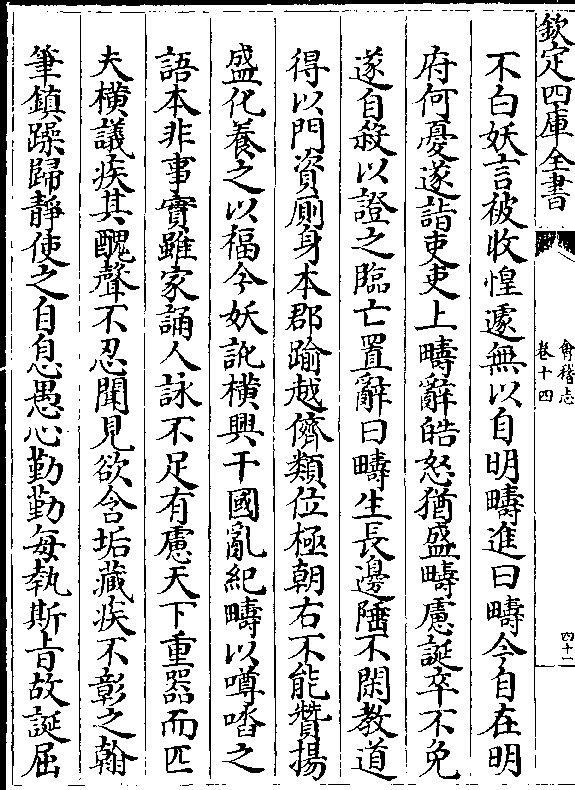 欽定四庫全書
會稽志
卷十四
四十二
不白妖言被收惶遽無以自明疇進曰疇今自在明
府何憂遂詣吏吏上疇辭皓怒猶盛疇慮誕卒不免
遂自殺以證之臨亡置辭曰疇生長邊陲不閑教道
得以門資廁身本郡踰越儕類位極朝右不能贊揚
盛化養之以福今妖訛橫興干國亂紀疇以噂㗳之
語本非事實雖家誦人詠不足有慮天下重器而匹
夫橫議疾其醜聲不忍聞見欲含垢藏疾不彰之翰
筆鎮躁歸靜使之自息愚心勤勤每執斯旨故誕屈